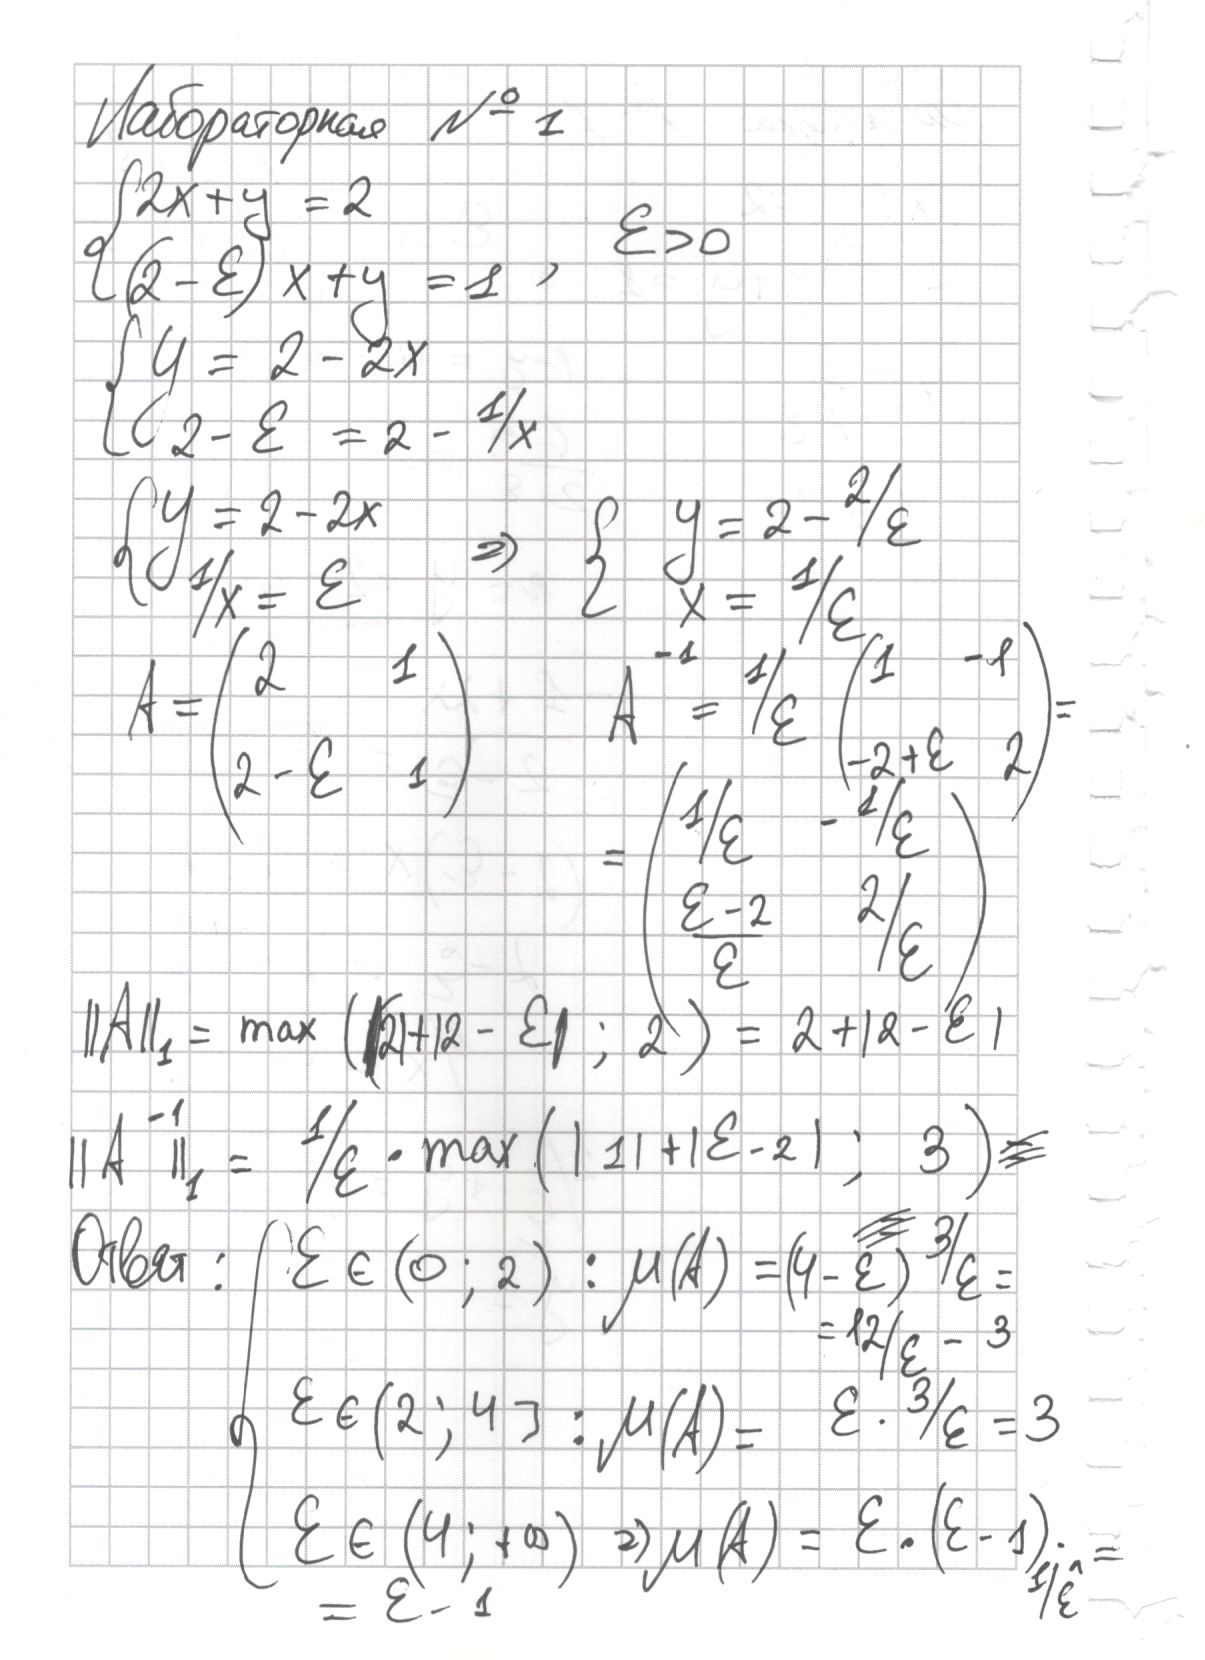 Лабораторная № 1
{ 2x + y = 2
(2 - ε) x + y = 1 , ε > 0
{ y = 2 - 2x
2 - ε = 2 - 1/x
{ y = 2 - 2x
1/x = ε
=> { y = 2 - 2/ε
x = 1/ε
A = ( 2 1
2 - ε 1 )
A^-1 = 1/ε ( 1 -1
-2+ε 2 ) =
= ( 1/ε -1/ε
(ε-2)/ε 2/ε )
||A||_1 = max (|2|+|2 - ε| ; 2) = 2+|2 - ε|
||A^-1||_1 = 1/ε · max (|1|+|ε-2| ; 3)
Ответ : { ε ∈ (0 ; 2) : μ(A) = (4 - ε) 3/ε =
= 12/ε - 3
ε ∈ (2 ; 4] : μ(A) = ε · 3/ε = 3
ε ∈ (4 ; +∞) => μ(A) = ε · (ε - 1) · 1/ε =
= ε - 1